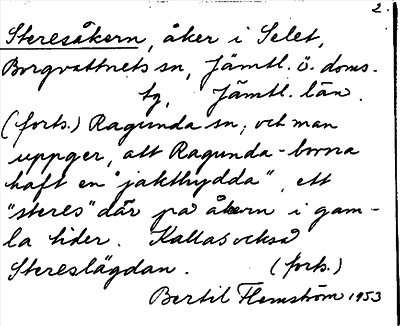 2.
Steresåkern, åker i Selet,
Borgvattnets sn, Jämtl. ö. doms.
tg, Jämtl. län.
(forts.) Ragunda sn, och man
uppger, att Ragunda-borna
haft en "jakthydda", ett
"steres" där på åkern i gam-
la tider. Kallas också
Stereslägdan. (forts.)
Bertil Flemström 1953